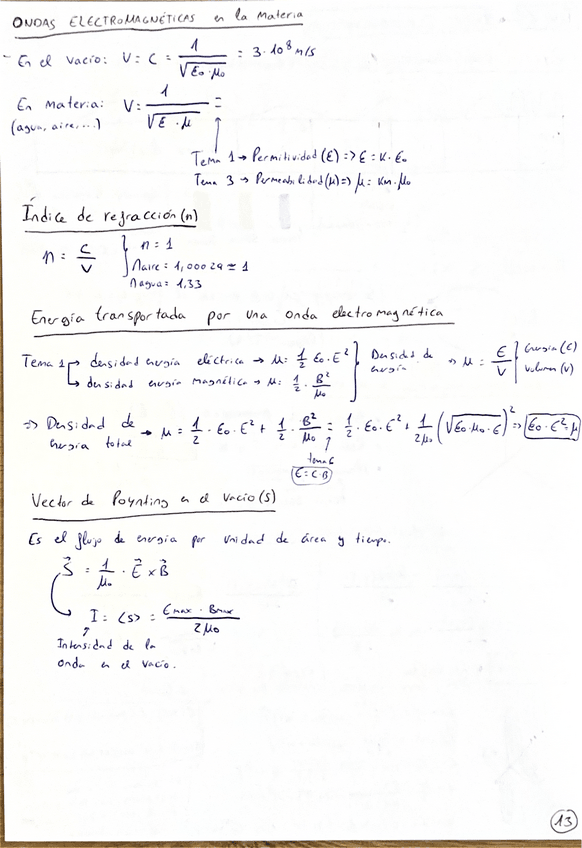 ONDAS ELECTROMAGNÉTICAS en la materia
- En el vacío: V = C = 1/√(ε₀·μ₀) = 3·10⁸ m/s
En materia: V = 1/√(ε·μ) =
(agua, aire,...)
Tema 1 → Permitividad (ε) => ε = K·ε₀
Tema 3 → Permeabilidad (μ) => μ = Km·μ₀
Índice de refracción (n)
n = C/V } n = 1
naire = 1,00029 ≃ 1
nagua = 1,33
Energía transportada por una onda electromagnética
Tema 1 → densidad energía eléctrica → μ = 1/2 ε₀·E² } Densidad de energía → μ = E/V } Energía (E) volumen (V)
↳ densidad energía magnética → μ = 1/2 · B²/μ₀
=> Densidad de energía total → μ = 1/2 · ε₀·E² + 1/2 · B²/μ₀ = 1/2 · ε₀·E² + 1/2μ₀ (√(ε₀·μ₀)·E)² => ε₀·E² = μ
↑
tema 6
E = C·B
Vector de Poynting en el vacío (S)
Es el flujo de energía por unidad de área y tiempo.
S⃗ = 1/μ₀ · E⃗ x B⃗
I = <S> = Emax · Bmax / 2μ₀
↑
Intensidad de la
onda en el vacío.
13